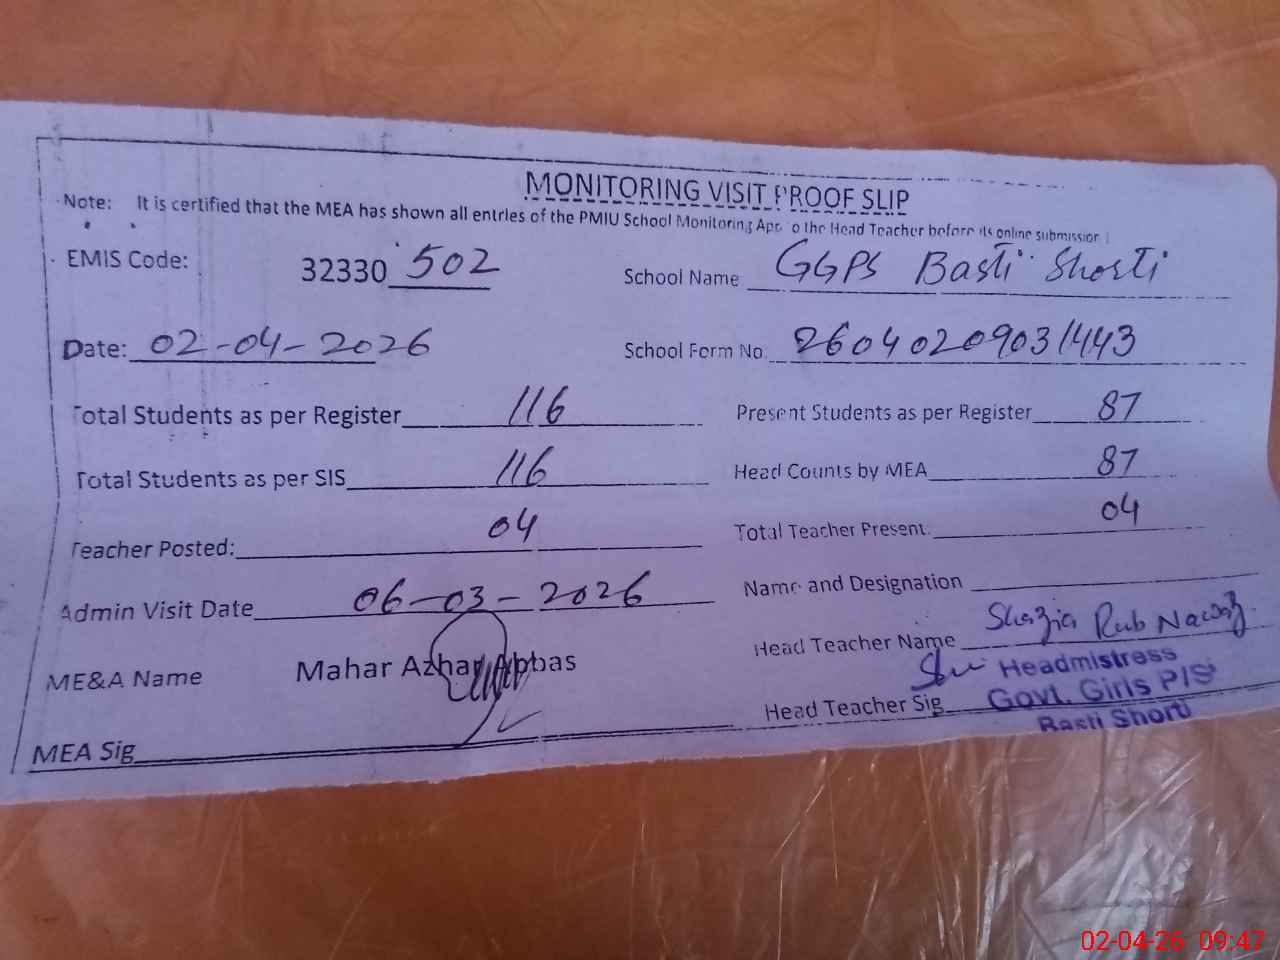 MONITORING VISIT PROOF SLIP
Note: It is certified that the MEA has shown all entries of the PMIU School Monitoring App to the Head Teacher before its online submission
EMIS Code: 32330 502 School Name GGPS Basti Shorti
Date: 02-04-2026 School Form No. 26040209031443
Total Students as per Register 116 Present Students as per Register 87
Total Students as per SIS 116 Head Counts by MEA 87
Teacher Posted: 04 Total Teacher Present: 04
Admin Visit Date 06-03-2026 Name and Designation
ME&A Name Mahar Azhar Abbas Head Teacher Name Shazia Rub Nawaz
MEA Sig Head Teacher Sig
Headmistress
Govt. Girls P/S
Basti Shorti
02-04-26 09:47